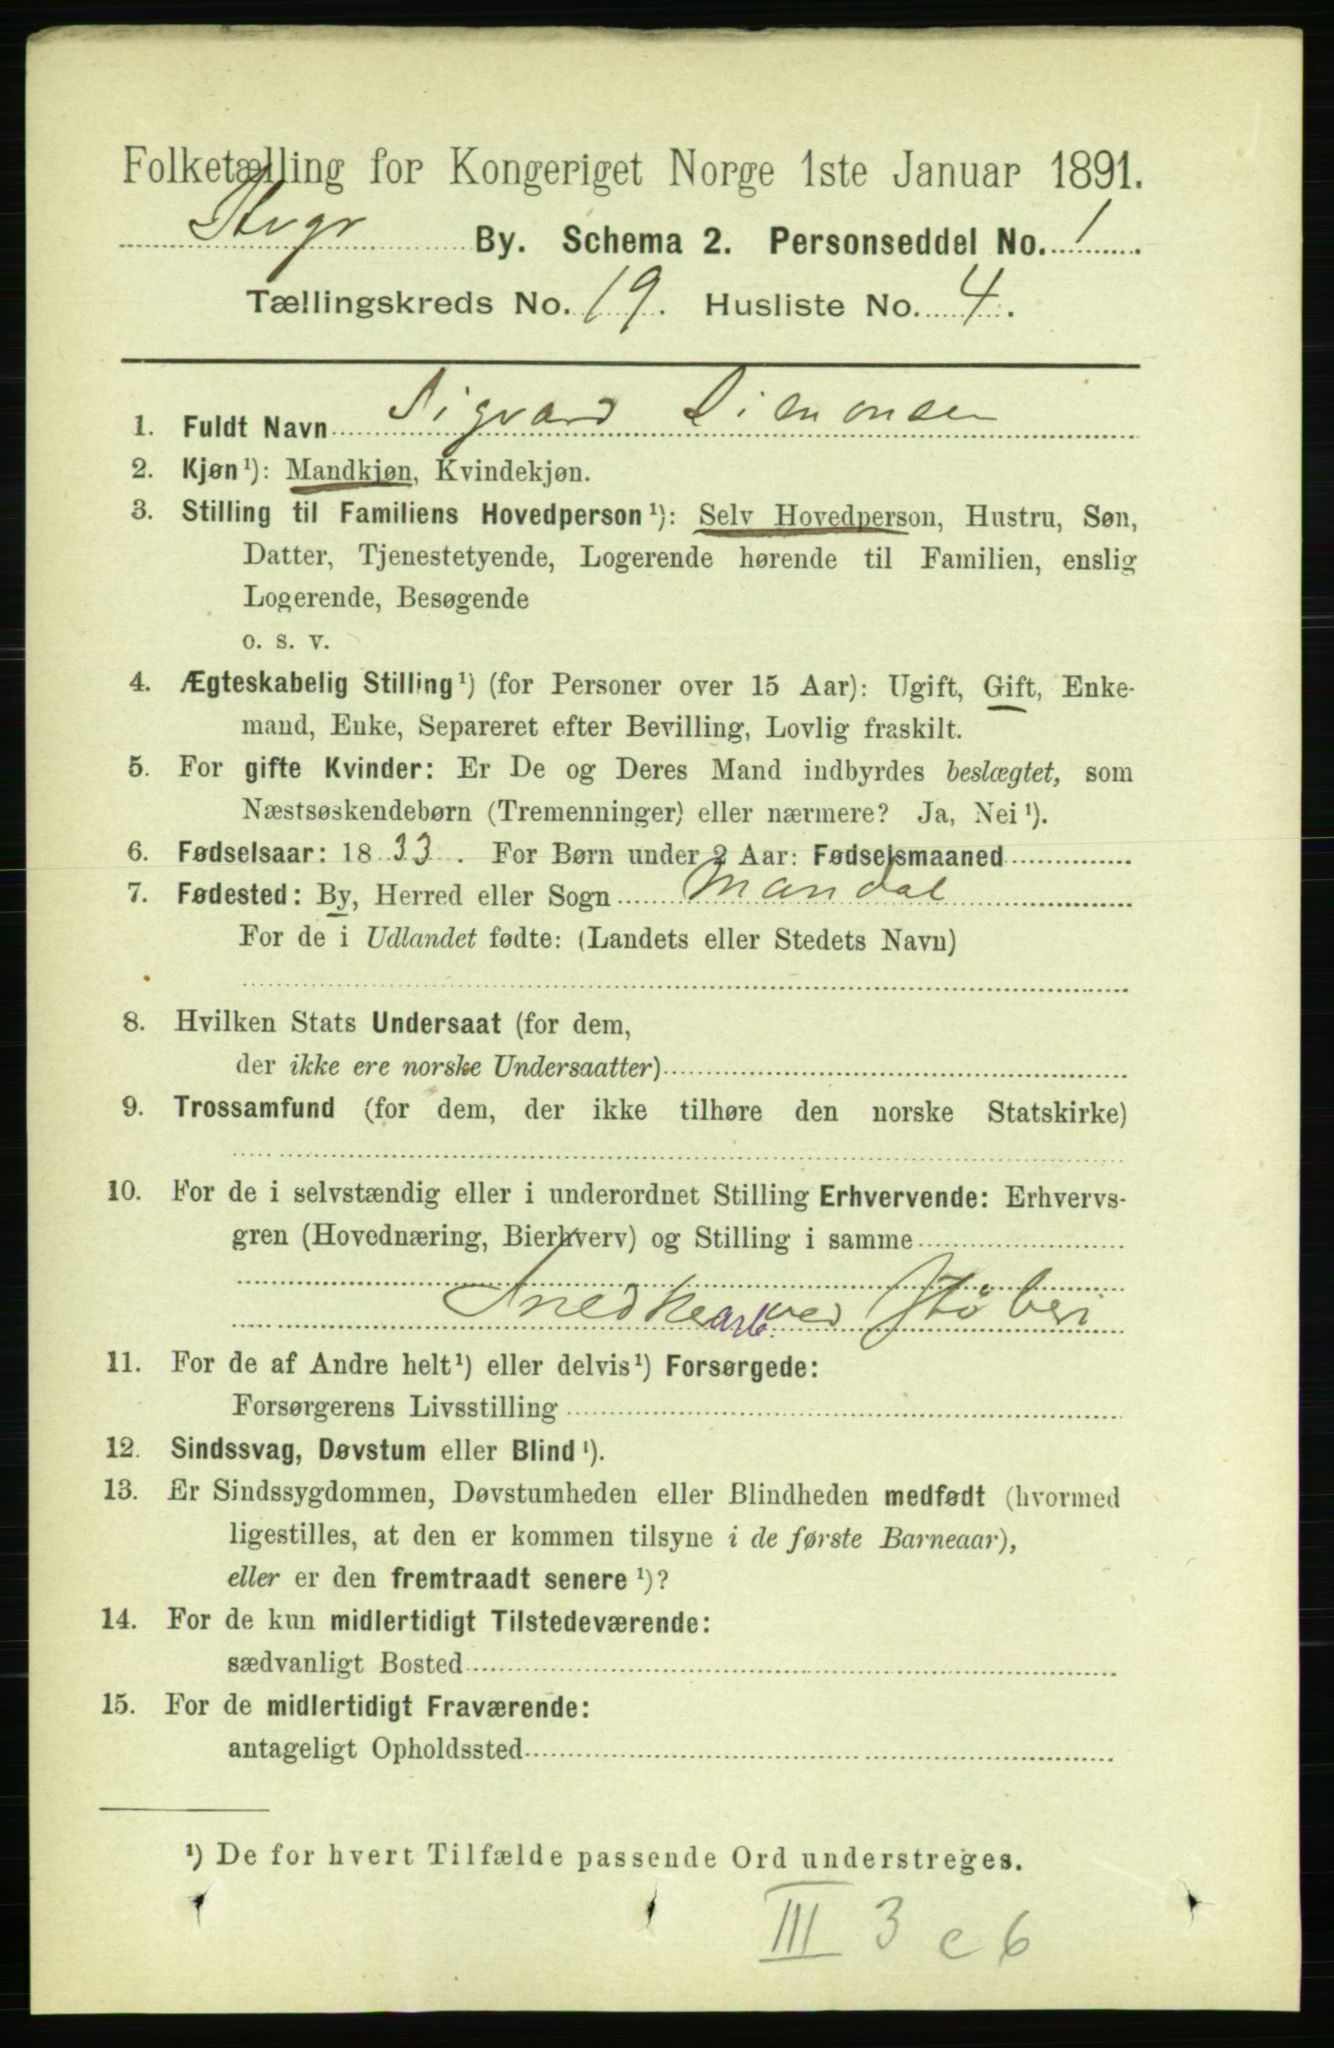 Folketælling for Kongeriget Norge 1ste Januar 1891.
Stvgr By. Schema 2. Personseddel No. 1.
Tællingskreds No. 19. Husliste No. 4.
1. Fuldt Navn Sigvard Simonsen
2. Kjøn¹): Mandkjøn, Kvindekjøn.
3. Stilling til Familiens Hovedperson¹): Selv Hovedperson, Hustru, Søn,
Datter, Tjenestetyende, Logerende hørende til Familien, enslig
Logerende, Besøgende
o. s. v.
4. Ægteskabelig Stilling¹) (for Personer over 15 Aar): Ugift, Gift, Enke-
mand, Enke, Separeret efter Bevilling, Lovlig fraskilt.
5. For gifte Kvinder: Er De og Deres Mand indbyrdes beslægtet, som
Næstsøskendebørn (Tremenninger) eller nærmere? Ja, Nei¹).
6. Fødselsaar: 1833. For Børn under 2 Aar: Fødselsmaaned
7. Fødested: By, Herred eller Sogn Mandal
For de i Udlandet fødte: (Landets eller Stedets Navn)
8. Hvilken Stats Undersaat (for dem,
der ikke ere norske Undersaatter)
9. Trossamfund (for dem, der ikke tilhøre den norske Statskirke)
10. For de i selvstændig eller i underordnet Stilling Erhvervende: Erhvervs-
gren (Hovednæring, Bierhverv) og Stilling i samme
Snedkerarb. ved Støberi
11. For de af Andre helt¹) eller delvis¹) Forsørgede:
Forsørgerens Livsstilling
12. Sindssvag, Døvstum eller Blind¹).
13. Er Sindssygdommen, Døvstumheden eller Blindheden medfødt (hvormed
ligestilles, at den er kommen tilsyne i de første Barneaar),
eller er den fremtraadt senere¹)?
14. For de kun midlertidigt Tilstedeværende:
sædvanligt Bosted
15. For de midlertidigt Fraværende:
antageligt Opholdssted
¹) De for hvert Tilfælde passende Ord understreges.
III 3 e 6